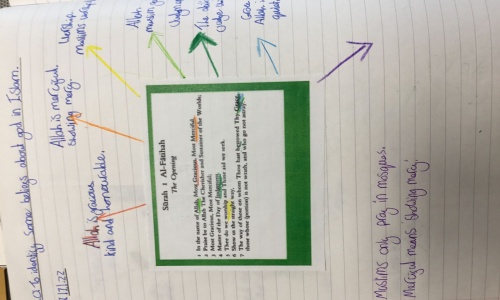 to identify some beliefs about god in Islam.
Allah is gracious
kind and honourable.
Allah is merciful.
showing mercy.
worship
muslims
Allah
muslim
judge
Allah is
Sūrah 1 Al-Fātihah
The Opening
1 In the name of Allah, Most Gracious, Most Merciful.
2 Praise be to Allah The Cherisher and Sustainer of the Worlds;
3 Most Gracious, Most Merciful;
4 Master of the Day of Judgement.
5 Thee do we worship and Thine aid we seek.
6 Show us the straight way,
7 The way of those on whom Thou has bestowed Thy Grace,
those whose (portion) is not wrath, and who go not astray.
Muslims only pray in mosques.
Merciful means showing mercy.